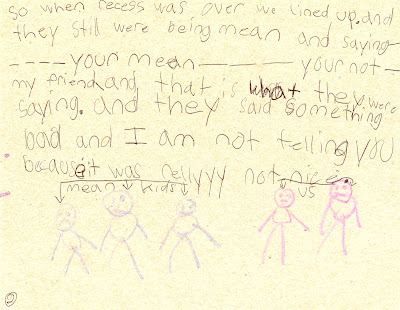 so when recess was over we lined up. and
they still were being mean and saying
---- your mean ———— your not —
my friend and that is what they were
saying. and they said something
bad and I am not telling you
because it was rellyyy not nice
mean kids
us